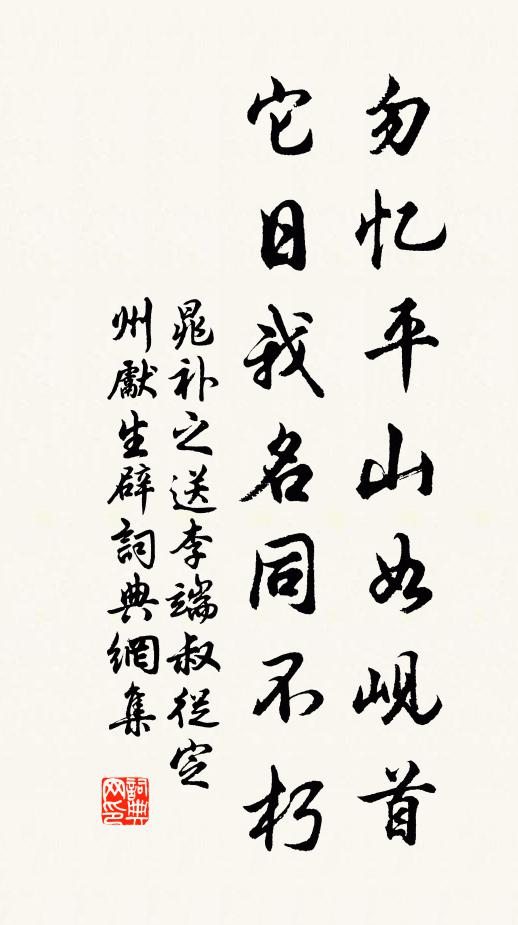 勿忆平山如岘首
它日我名同不朽
晁补之送李端叔從定
州獻生辟詞典網集
詞典网印